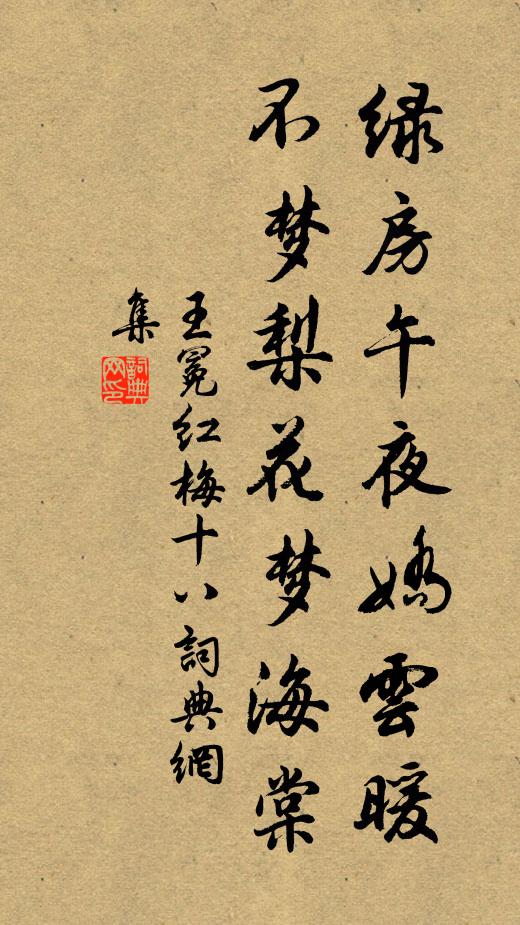 绿房午夜嬌雲暖
不梦梨花梦海棠
王冕红梅十八詞典網
集
詞典网印